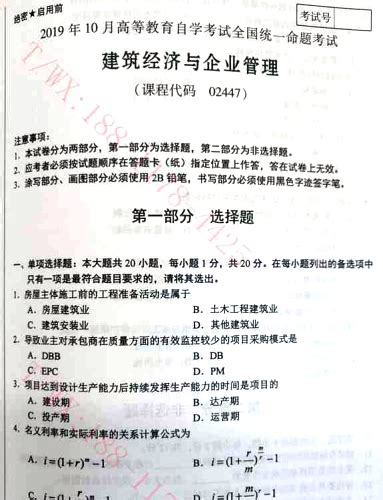 绝密★启用前
考试号
2019 年 10 月高等教育自学考试全国统一命题考试
建筑经济与企业管理
(课程代码 02447)
注意事项:
1. 本试卷分为两部分,第一部分为选择题,第二部分为非选择题。
2. 应考者必须按试题顺序在答题卡(纸)指定位置上作答,答在试卷上无效。
3. 涂写部分、画图部分必须使用 2B 铅笔,书写部分必须使用黑色字迹签字笔。
第一部分 选择题
一、单项选择题:本大题共 20 小题,每小题 1 分,共 20 分。在每小题列出的备选项中
只有一项是最符合题目要求的,请将其选出。
1. 房屋主体施工前的工程准备活动是属于
A. 房屋建筑业 B. 土木工程建筑业
C. 建筑安装业 D. 其他建筑业
2. 导致业主对承包商在质量方面的有效监控较少的项目采购模式是
A. DBB B. DB
C. EPC D. PM
3. 项目达到设计生产能力后持续发挥生产能力的时间是项目的
A. 建设期 B. 达产期
C. 投产期 D. 运营期
4. 名义利率和实际利率的关系计算公式为
A. i=(1+r)^m-1 B. i=(1+r/m)^r-1
T/WX:188